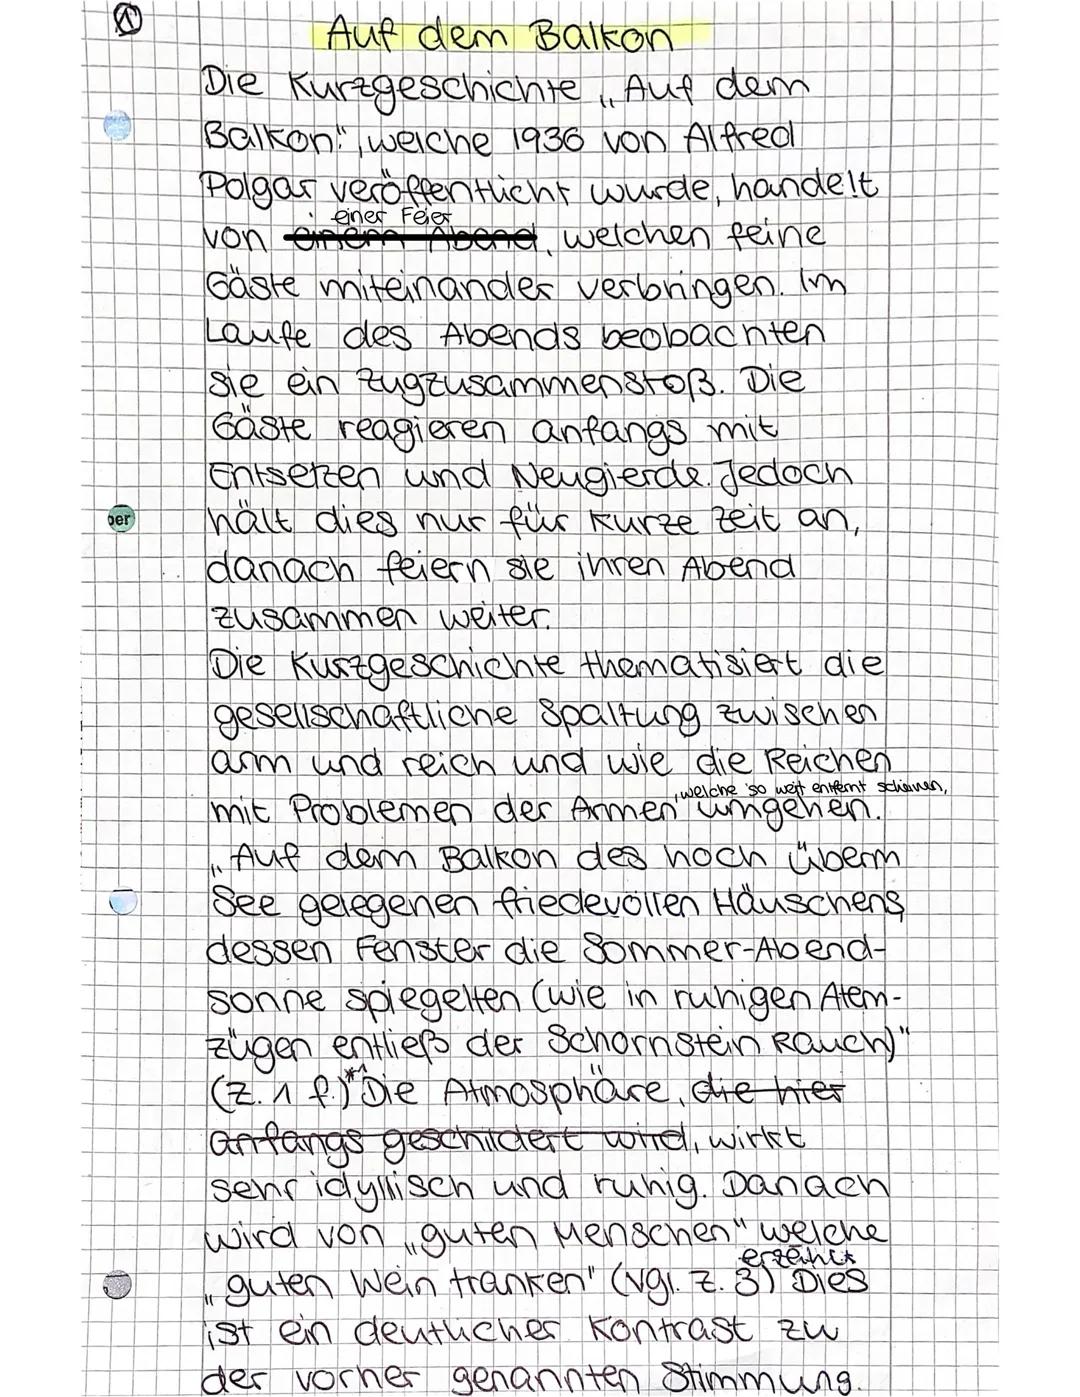 1
Auf dem Balkon
Die Kurzgeschichte „Auf dem
Balkon", welche 1936 von Alfred
Polgar veröffentlicht wurde, handelt
einer Feier
von einem Abend, welchen feine
Gäste miteinander verbringen. Im
Laufe des Abends beobachten
sie ein Zugzusammenstoß. Die
Gäste reagieren anfangs mit
Entsetzen und Neugierde. Jedoch
hält dies nur für kurze Zeit an,
danach feiern sie ihren Abend
zusammen weiter.
Die Kurzgeschichte thematisiert die
gesellschaftliche Spaltung zwischen
arm und reich und wie die Reichen
, welche so weit entfernt scheinen,
mit Problemen der Armen umgehen.
„Auf dem Balkon des hoch überm
See gelegenen friedevollen Häuschens
dessen Fenster die Sommer-Abend-
sonne spiegelten (wie in ruhigen Atem-
zügen entließ der Schornstein Rauch)"
(Z. 1 f.)*1 Die Atmosphäre, die hier
anfangs geschildert wird, wirkt
sehr idyllisch und ruhig. Danach
wird von „guten Menschen" welche
erzählt
„guten Wein tranken" (vgl. Z. 3) Dies
ist ein deutlicher Kontrast zu
der vorher genannten Stimmung.
ber